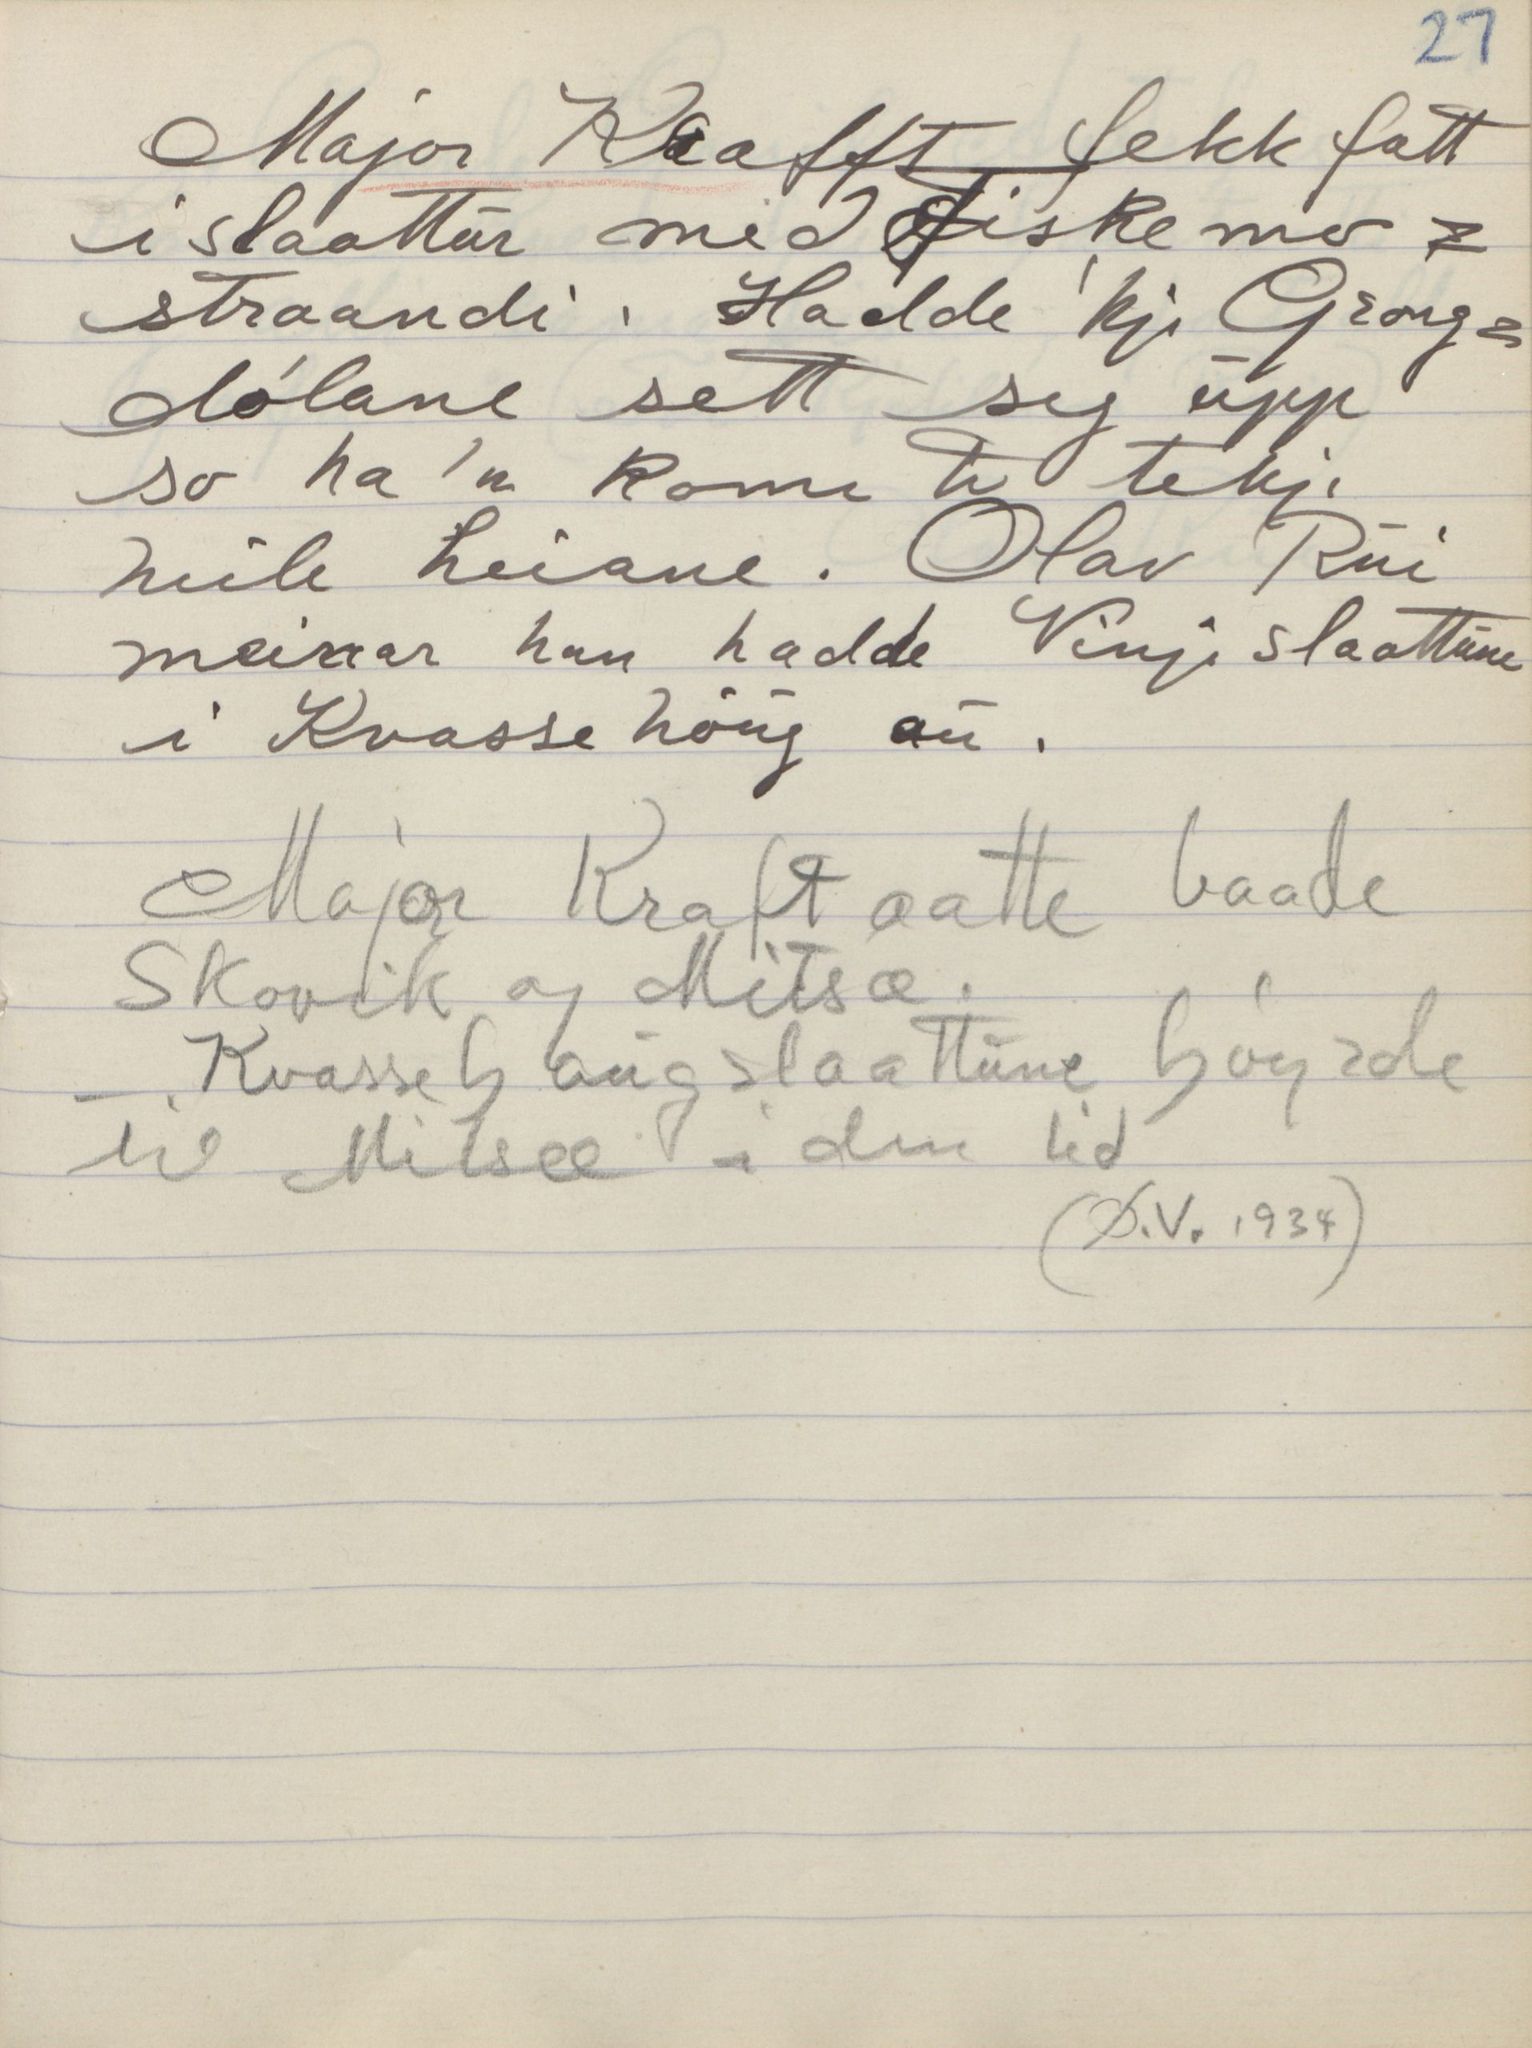 27
Major Krafft fekk fatt
i slaattür med Fiskemo=
straandi. Hadde 'kje Grong=
dólane sett seg üpp
so ha 'n kome te tekje
heile heiane. Olav Rüi
meinar han hadde Vinjeslaattüne
i Kvassehöüg aü.
Major Kraft aatte baade
Skovik og Mitsæ.
Kvassehaügslaattüne höyrde
til Mitsæ i den tid
(Ø.V. 1934)